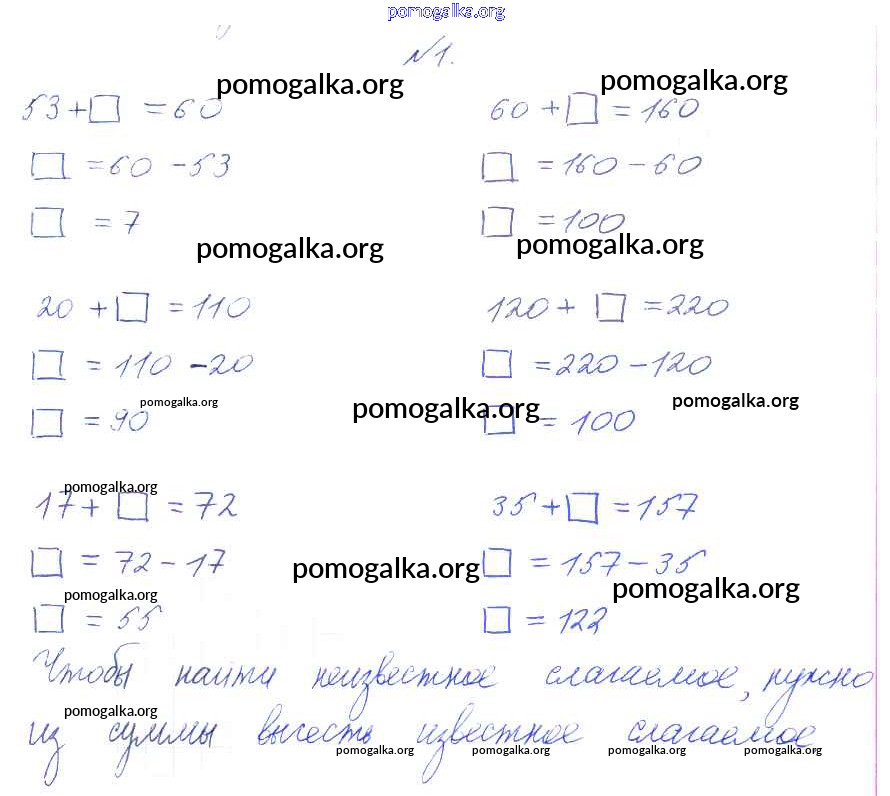 pomogalka.org
№1.
pomogalka.org pomogalka.org
53+□ =60 60 +□ =160
□ =60 -53 □ =160-60
□ =7 □ =100
pomogalka.org pomogalka.org
20 +□ =110 120+ □ =220
□ = 110 -20 □ =220-120
pomogalka.org pomogalka.org pomogalka.org
□ = 90 □ = 100
pomogalka.org
17+ □ =72 35+□ =157
□ = 72-17 □ = 157-35
pomogalka.org pomogalka.org pomogalka.org
□ = 55 □ = 122
Чтобы найти неизвестное слагаемое, нужно
pomogalka.org
из суммы вычесть известное слагаемое
pomogalka.org pomogalka.org pomogalka.org pomogalka.org